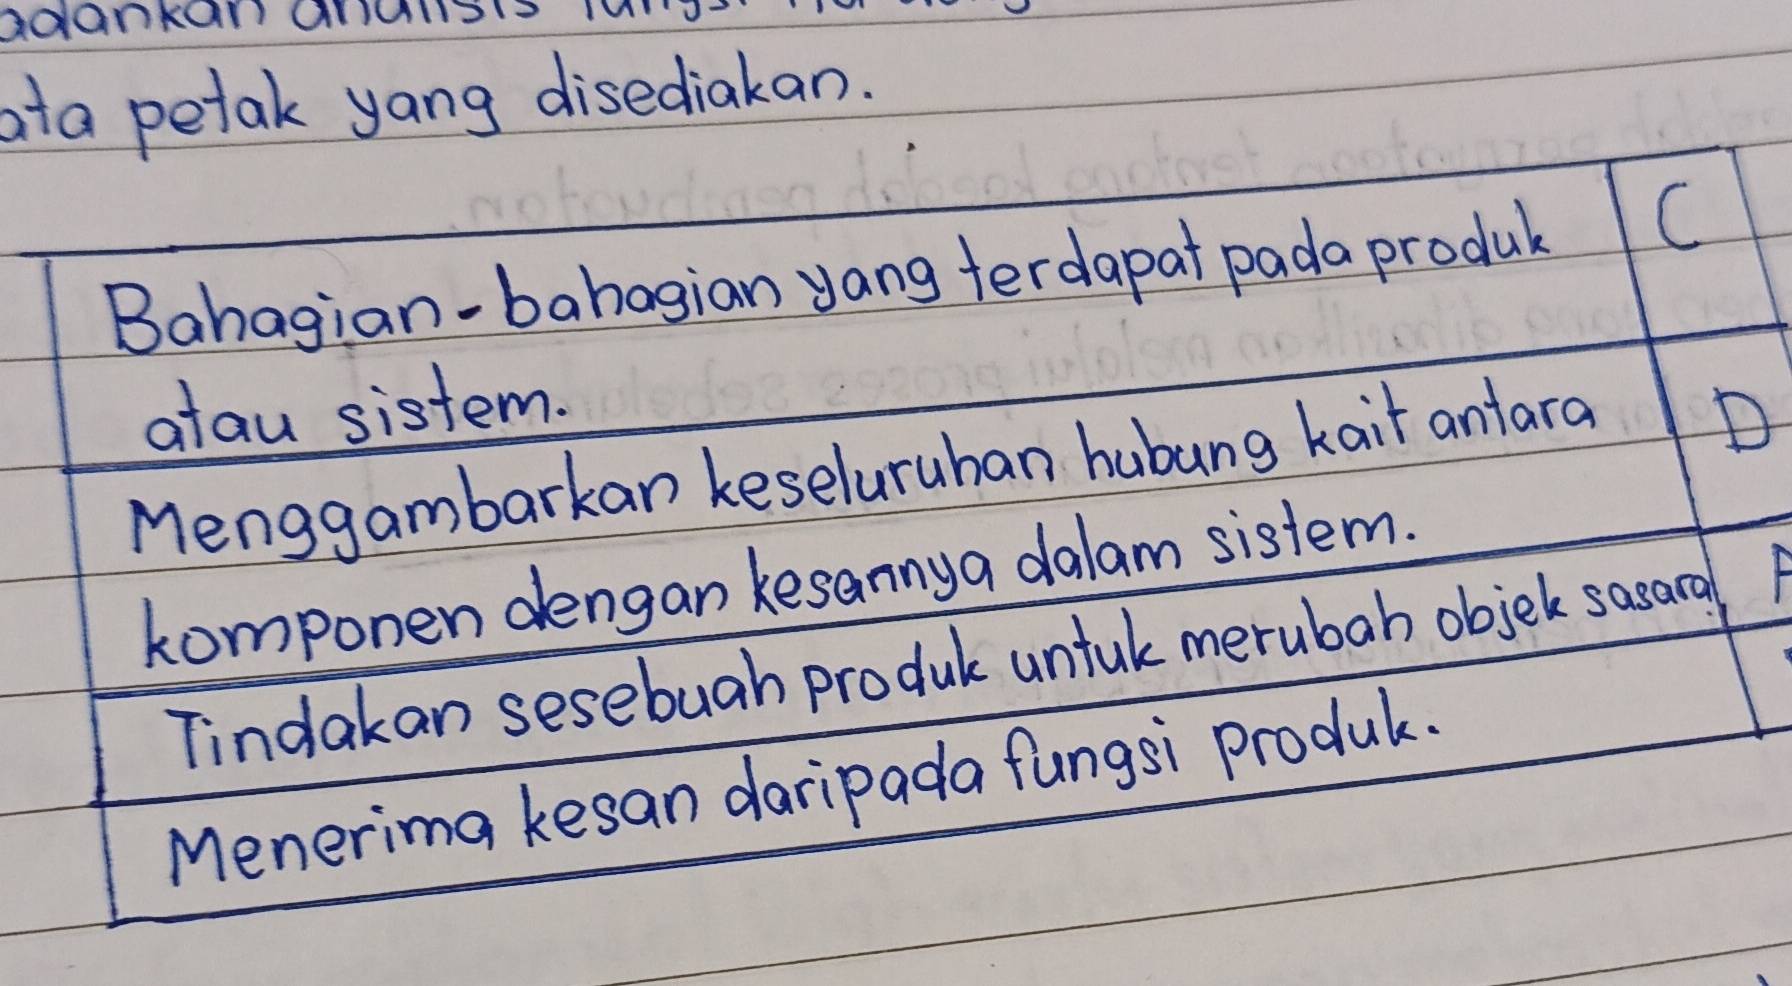 ata petak yang disediakan.
Bahagian-bahagian yang terdapat pada produk C
atau sistem.
Menggambarkan keseluruhan hubung kait antara D
komponen dengan kesannya dalam sistem.
Tindakan sesebuah produk untuk merubah objek sasara
Menerima kesan daripada fungsi produk.